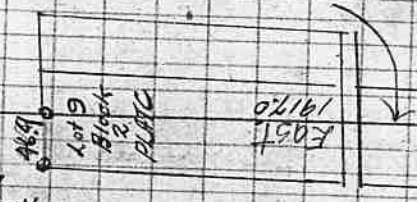 46.9
Lot 9
Block
2
PLAT C
East
1917.0